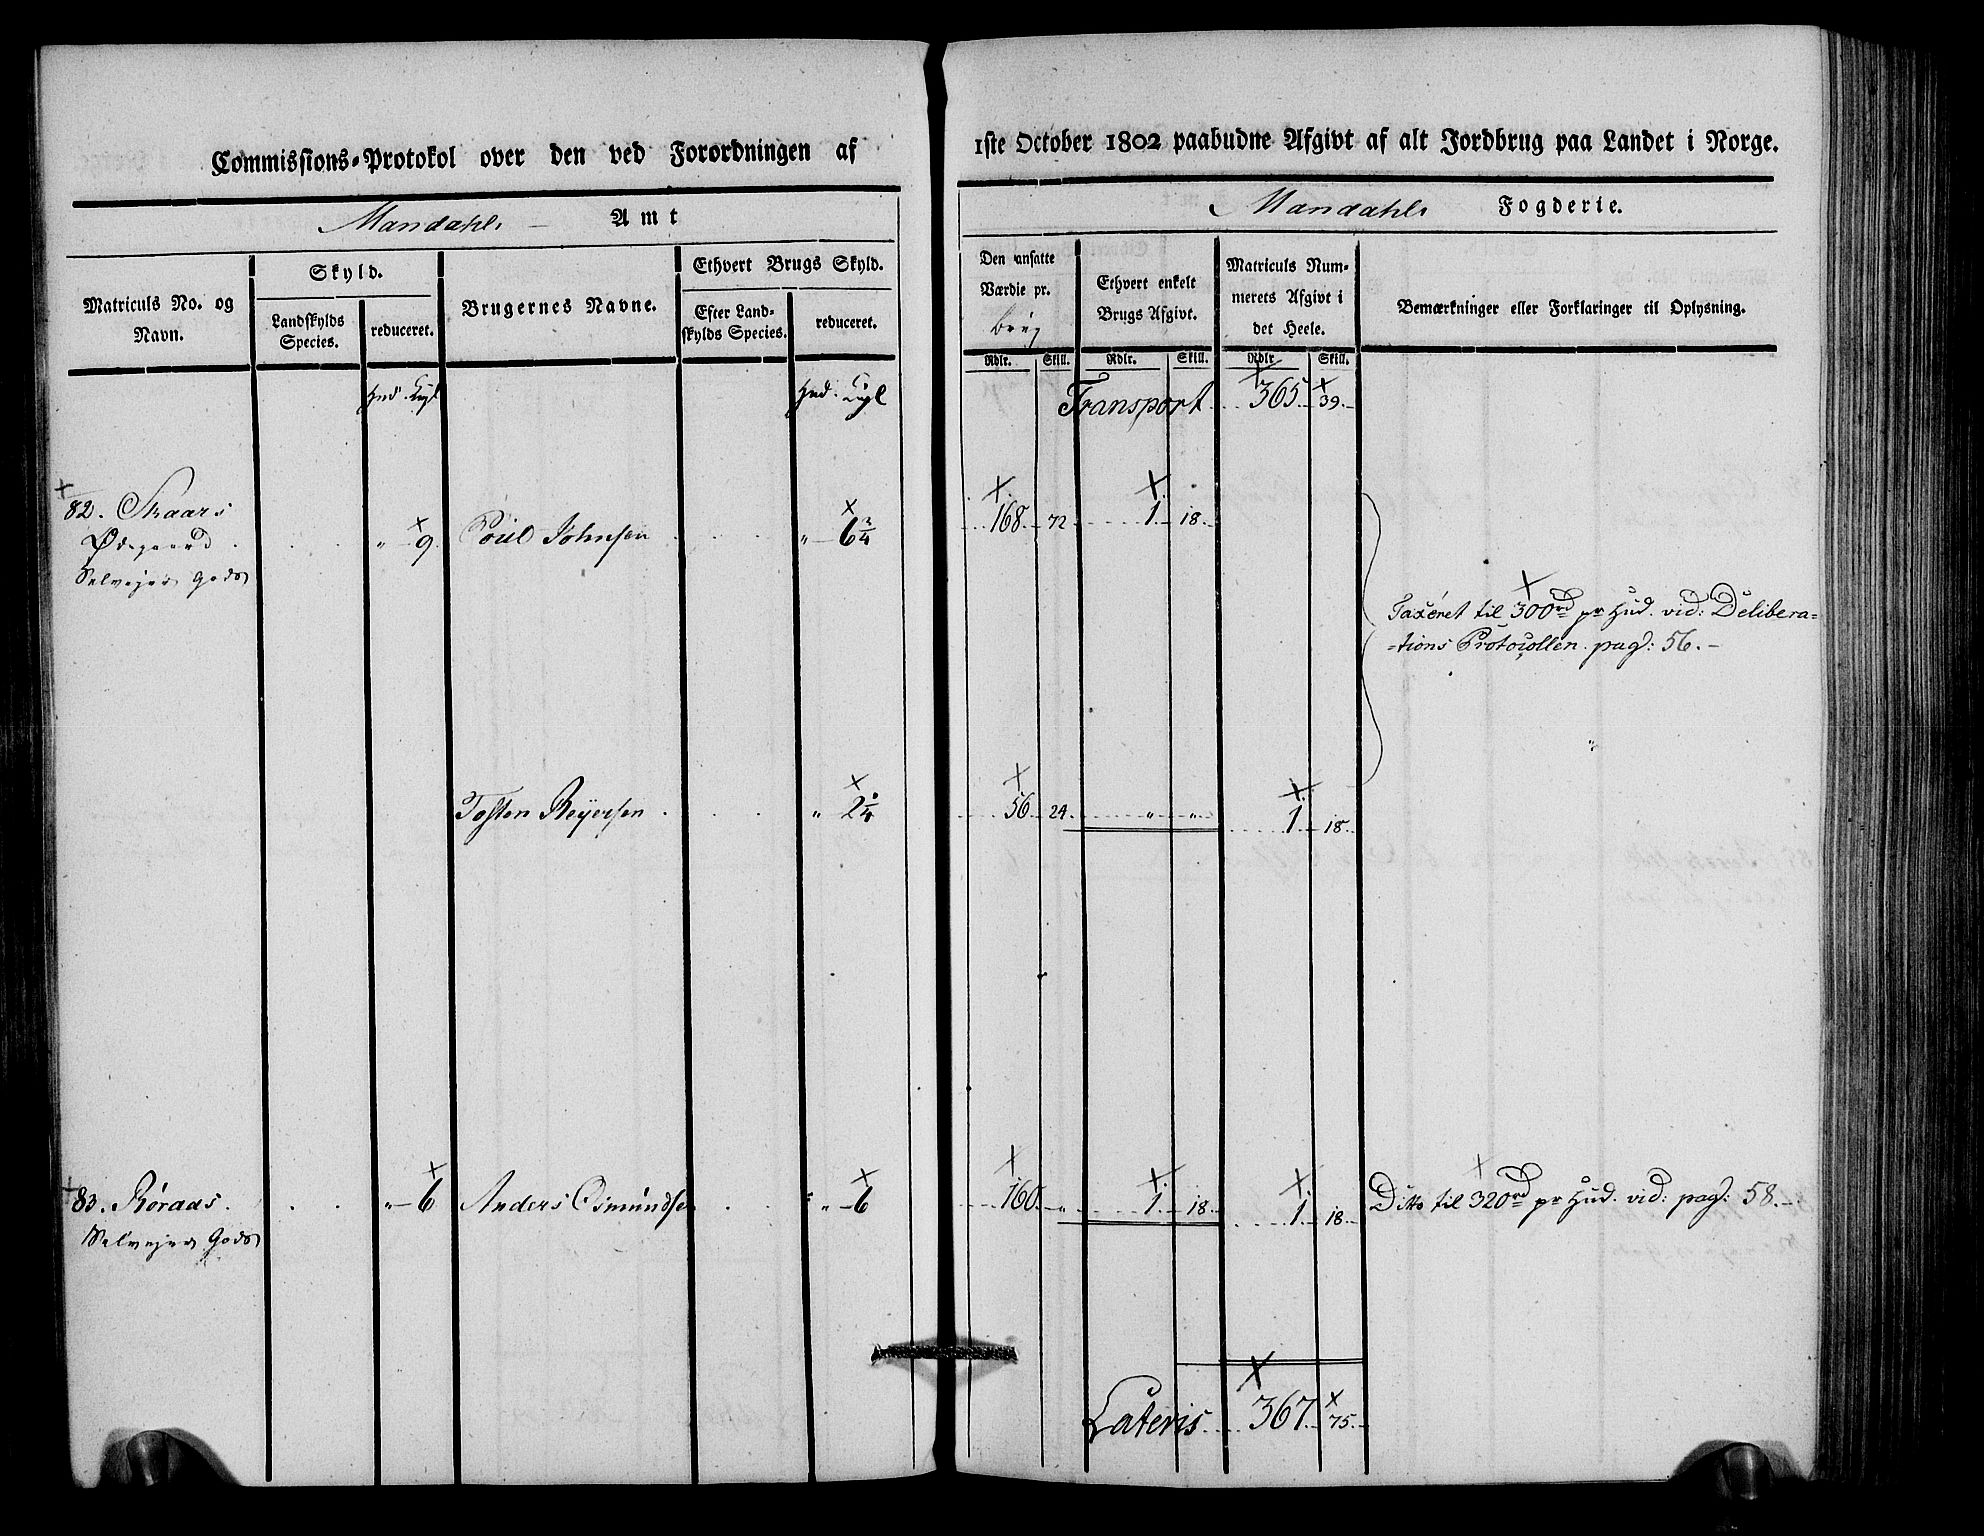 Commissions-Protokol over den ved Forordningen af
1ste October 1802 paabudne Afgivt af alt Jordbrug paa Landet i Norge.
Mandahls Amt
Mandahls Fogderie.
Matriculs No. og Navn.
Skyld.
Landskylds Species.
reduceret.
Brugernes Navne.
Ethvert Brugs Skyld.
Efter Landskylds Species.
reduceret.
Den ansatte Værdie pr. Brug
Ethvert enkelt Brugs Afgivt.
Matriculs Nummerets Afgivt i det Heele.
Bemærkninger eller Forklaringer til Oplysning.
Rdlr. Skill. Rdlr. Skill. Rdlr Skill.
Hud. Kugl Hud. Kugl
Transport 365. 39.
82. Skaars
Ødegaard . " 9 Poul Johnsen " 6 3/4 168. 72 1. 18.
Selveier Gods
Taxeret til 300rd pr Hud. vid: Delibera=
=tions Protocollen. pag: 56.
Tosten Reyersen . " 2 1/4 56. 24. " " 1. 18.
83. Røraas . " 6 Anders Osmundsen " 6 160. " 1. 18. 1. 18. Ditto til 320rd pr Hud. vid: pag: 58.
Selveier Gods
Lateris 367. 75.